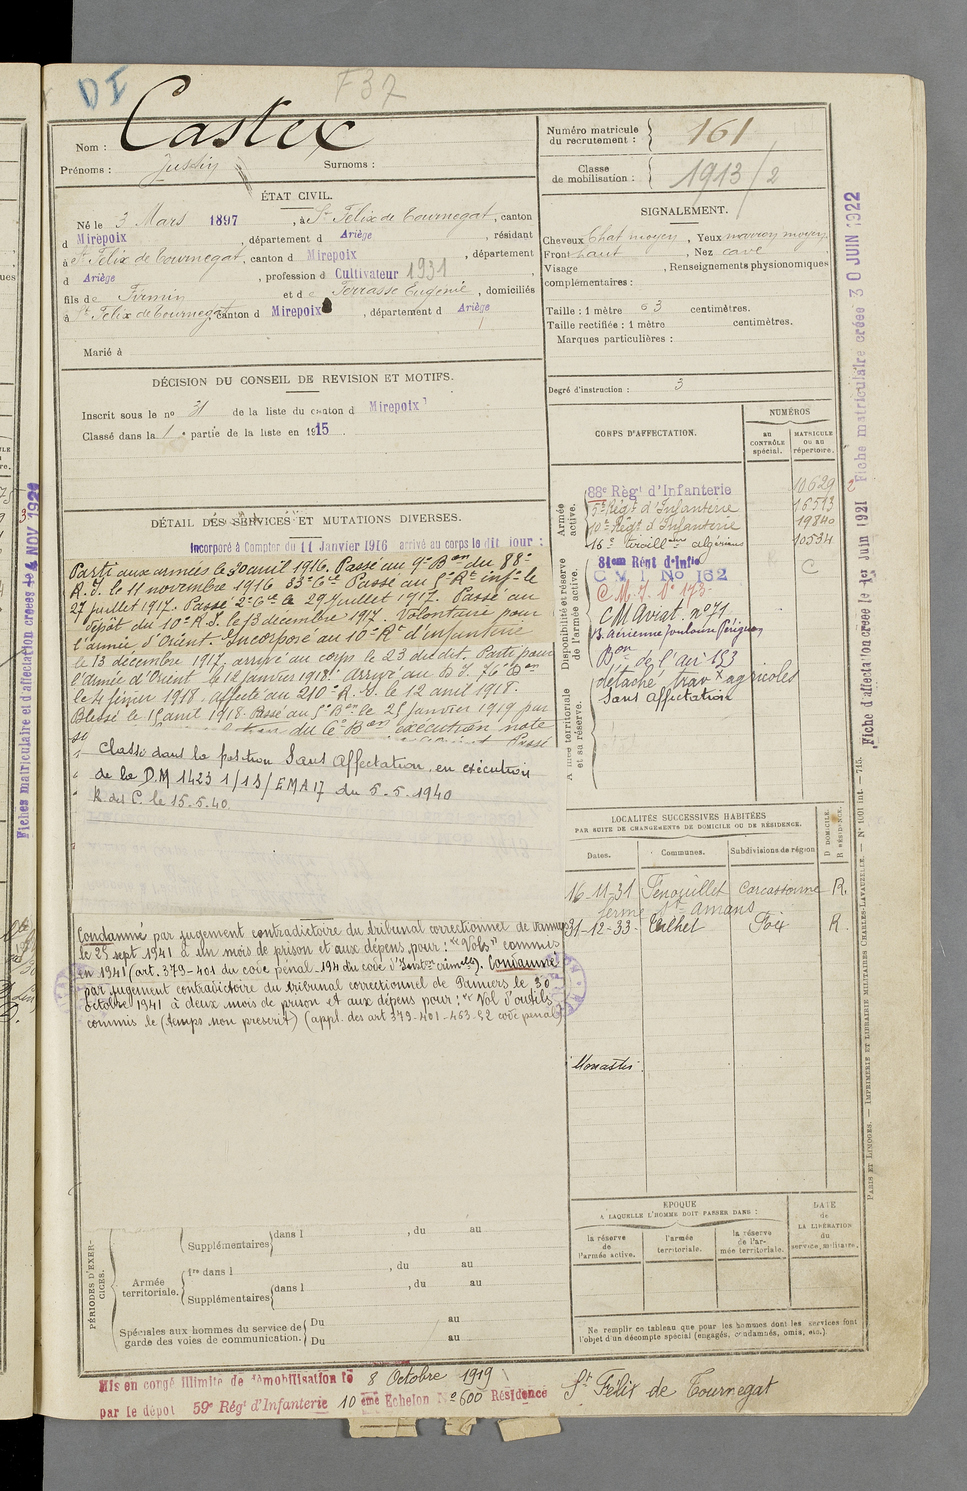 DI
F37
Nom : Castex
Prénoms : Justin Surnoms :
Numéro matricule du recrutement : 161
Classe de mobilisation : 1913/2
ÉTAT CIVIL.
Né le 3 Mars 1897, à St Felix de Tournegat, canton
d Mirepoix, département d Ariège, résidant
à St Felix de Tournegat, canton d Mirepoix, département
d Ariège, profession d Cultivateur 1931
fils de Firmin et de Terrasse Eugenie, domiciliés
à St Felix de Tournegat, canton d Mirepoix, département d Ariège
Marié à
SIGNALEMENT.
Cheveux Chat moyen, Yeux marron moyen
Front haut, Nez cave
Visage , Renseignements physionomiques
complémentaires :
Taille : 1 mètre 63 centimètres.
Taille rectifiée : 1 mètre centimètres.
Marques particulières :
Degré d'instruction : 3
DÉCISION DU CONSEIL DE REVISION ET MOTIFS.
Inscrit sous le no 31 de la liste du canton d Mirepoix
Classé dans la 1e partie de la liste en 1915
DÉTAIL DES SERVICES ET MUTATIONS DIVERSES.
Incorporé à Compter du 11 Janvier 1916 arrivé au corps le dit jour :
Parti aux armées le 30 avril 1916. Passé au 9e Bon du 88e
R.I. le 11 novembre 1916 33e Cie Passé au 5e Rt infie le
27 juillet 1917. Passé 2e Cie le 29 Juillet 1917. Passé au
dépôt du 10e R.I. le 13 décembre 1917. Volontaire pour
l'armée d'Orient Incorporé au 10e Rt d'infanterie
le 13 décembre 1917, arrivé au corps le 23 du dit. Parti pour
l'armée d'Orient le 12 janvier 1918. Arrivé au D.I. 76e Bon
le 4 février 1918. affecté au 210e R.I. le 12 avril 1918.
Blessé le 15 avril 1918. Passé au 5e Bon le 25 Janvier 1919 par
du 6e Bon exécution note
Passé
Classé dans la position Sans Affectation, en exécution
de la D.M 1423 1/13/EMA 17 du 5.5.1940
R. des C. le 15.5.40
Condamné par jugement contradictoire du tribunal correctionnel de
le 25 sept 1941 à un mois de prison et aux dépens, pour : "Vols" commis
en 1941 (art. 379-401 du code pénal - 194 du code d'Inston crimelle). Condamné
par jugement contradictoire du tribunal correctionnel de Pamiers le 30
octobre 1941 à deux mois de prison et aux dépens pour : "Vol d'outils
commis le (temps non prescrit) (appl. des art 379-401-463-52 code pénal)
CORPS D'AFFECTATION.
NUMÉROS
au CONTRÔLE spécial.
MATRICULE ou au répertoire.
Armée active.
88e Règt d'Infanterie 10629
5e Régt d'Infanterie 16593
10e Régt d'Infanterie 19840
16e tiraillrs algériens 10534
Disponibilité et réserve de l'armée active.
81em Rént d'Infie C
C V I No 162
C.M.I. No 173
CM Aviat. no 71
B. aérienne Toulouse Pérignon
Bon de l'air 153
détaché travx agricoles
Sans Affectation
Armée territoriale et sa réserve.
LOCALITÉS SUCCESSIVES HABITÉES
PAR SUITE DE CHANGEMENTS DE DOMICILE OU DE RÉSIDENCE.
Dates. Communes. Subdivisions de région
D. DOMICILE. R. RÉSIDENCE.
16-11-31 Fenouillet Carcassonne R
ferme St Amans
31-12-33 Teilhet Foix R.
ÉPOQUE
A LAQUELLE L'HOMME DOIT PASSER DANS :
la réserve de l'armée active.
l'armée territoriale.
la réserve de l'armée territoriale.
DATE de LA LIBÉRATION du service militaire.
Ne remplir ce tableau que pour les hommes dont les services font
l'objet d'un décompte spécial (engagés, condamnés, omis, etc.)
PÉRIODES D'EXERCICES.
Supplémentaires dans l , du au
Armée territoriale.
1re dans l , du au
Supplémentaires dans l , du au
Spéciales aux hommes du service de garde des voies de communication.
Du au
Du au
Mis en congé illimité de démobilisation le 8 Octobre 1919
par le dépôt 59e Régt d'Infanterie 10 eme Echelon No 600 Résidence St Félix de Tournegat
Fiches matriculaire et d'affectation créées le 4 NOV 1921
Fiche d'affectation créée le 1er juin 1921 Fiche matriculaire créée 30 JUIN 1922
PARIS ET LIMOGES. — IMPRIMERIE ET LIBRAIRIE MILITAIRES CHARLES-LAVAUZELLE. — No 1001 int. — 715.